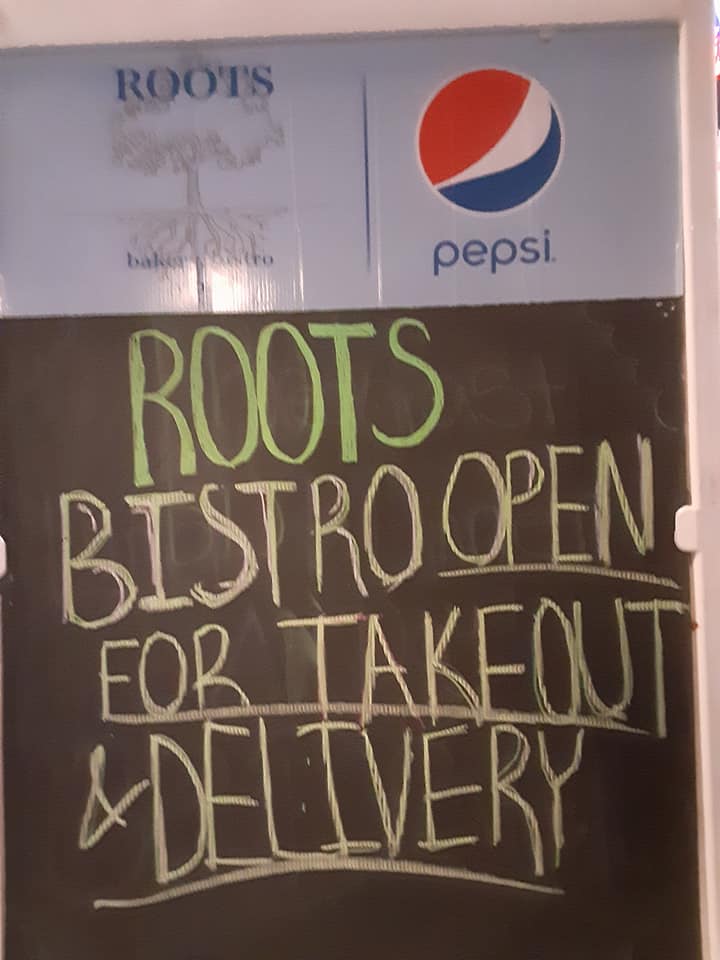 ROOTS
bakery bistro
pepsi
ROOTS
BISTRO OPEN
FOR TAKEOUT
& DELIVERY